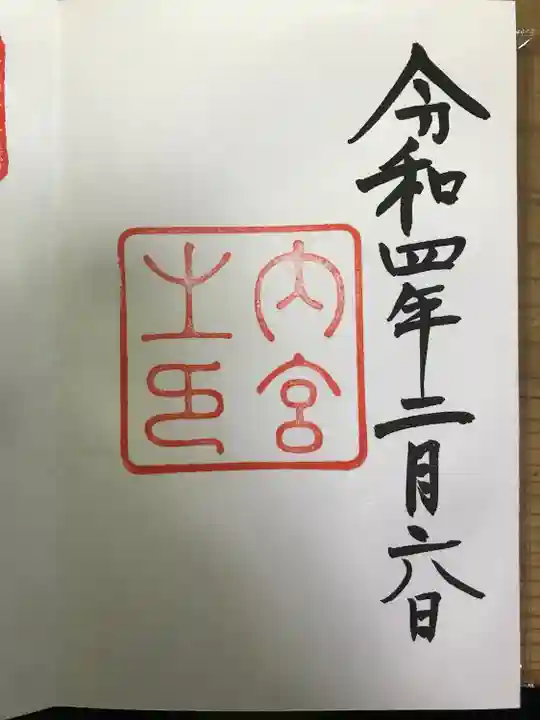 令和四年二月六日
内宮
之印